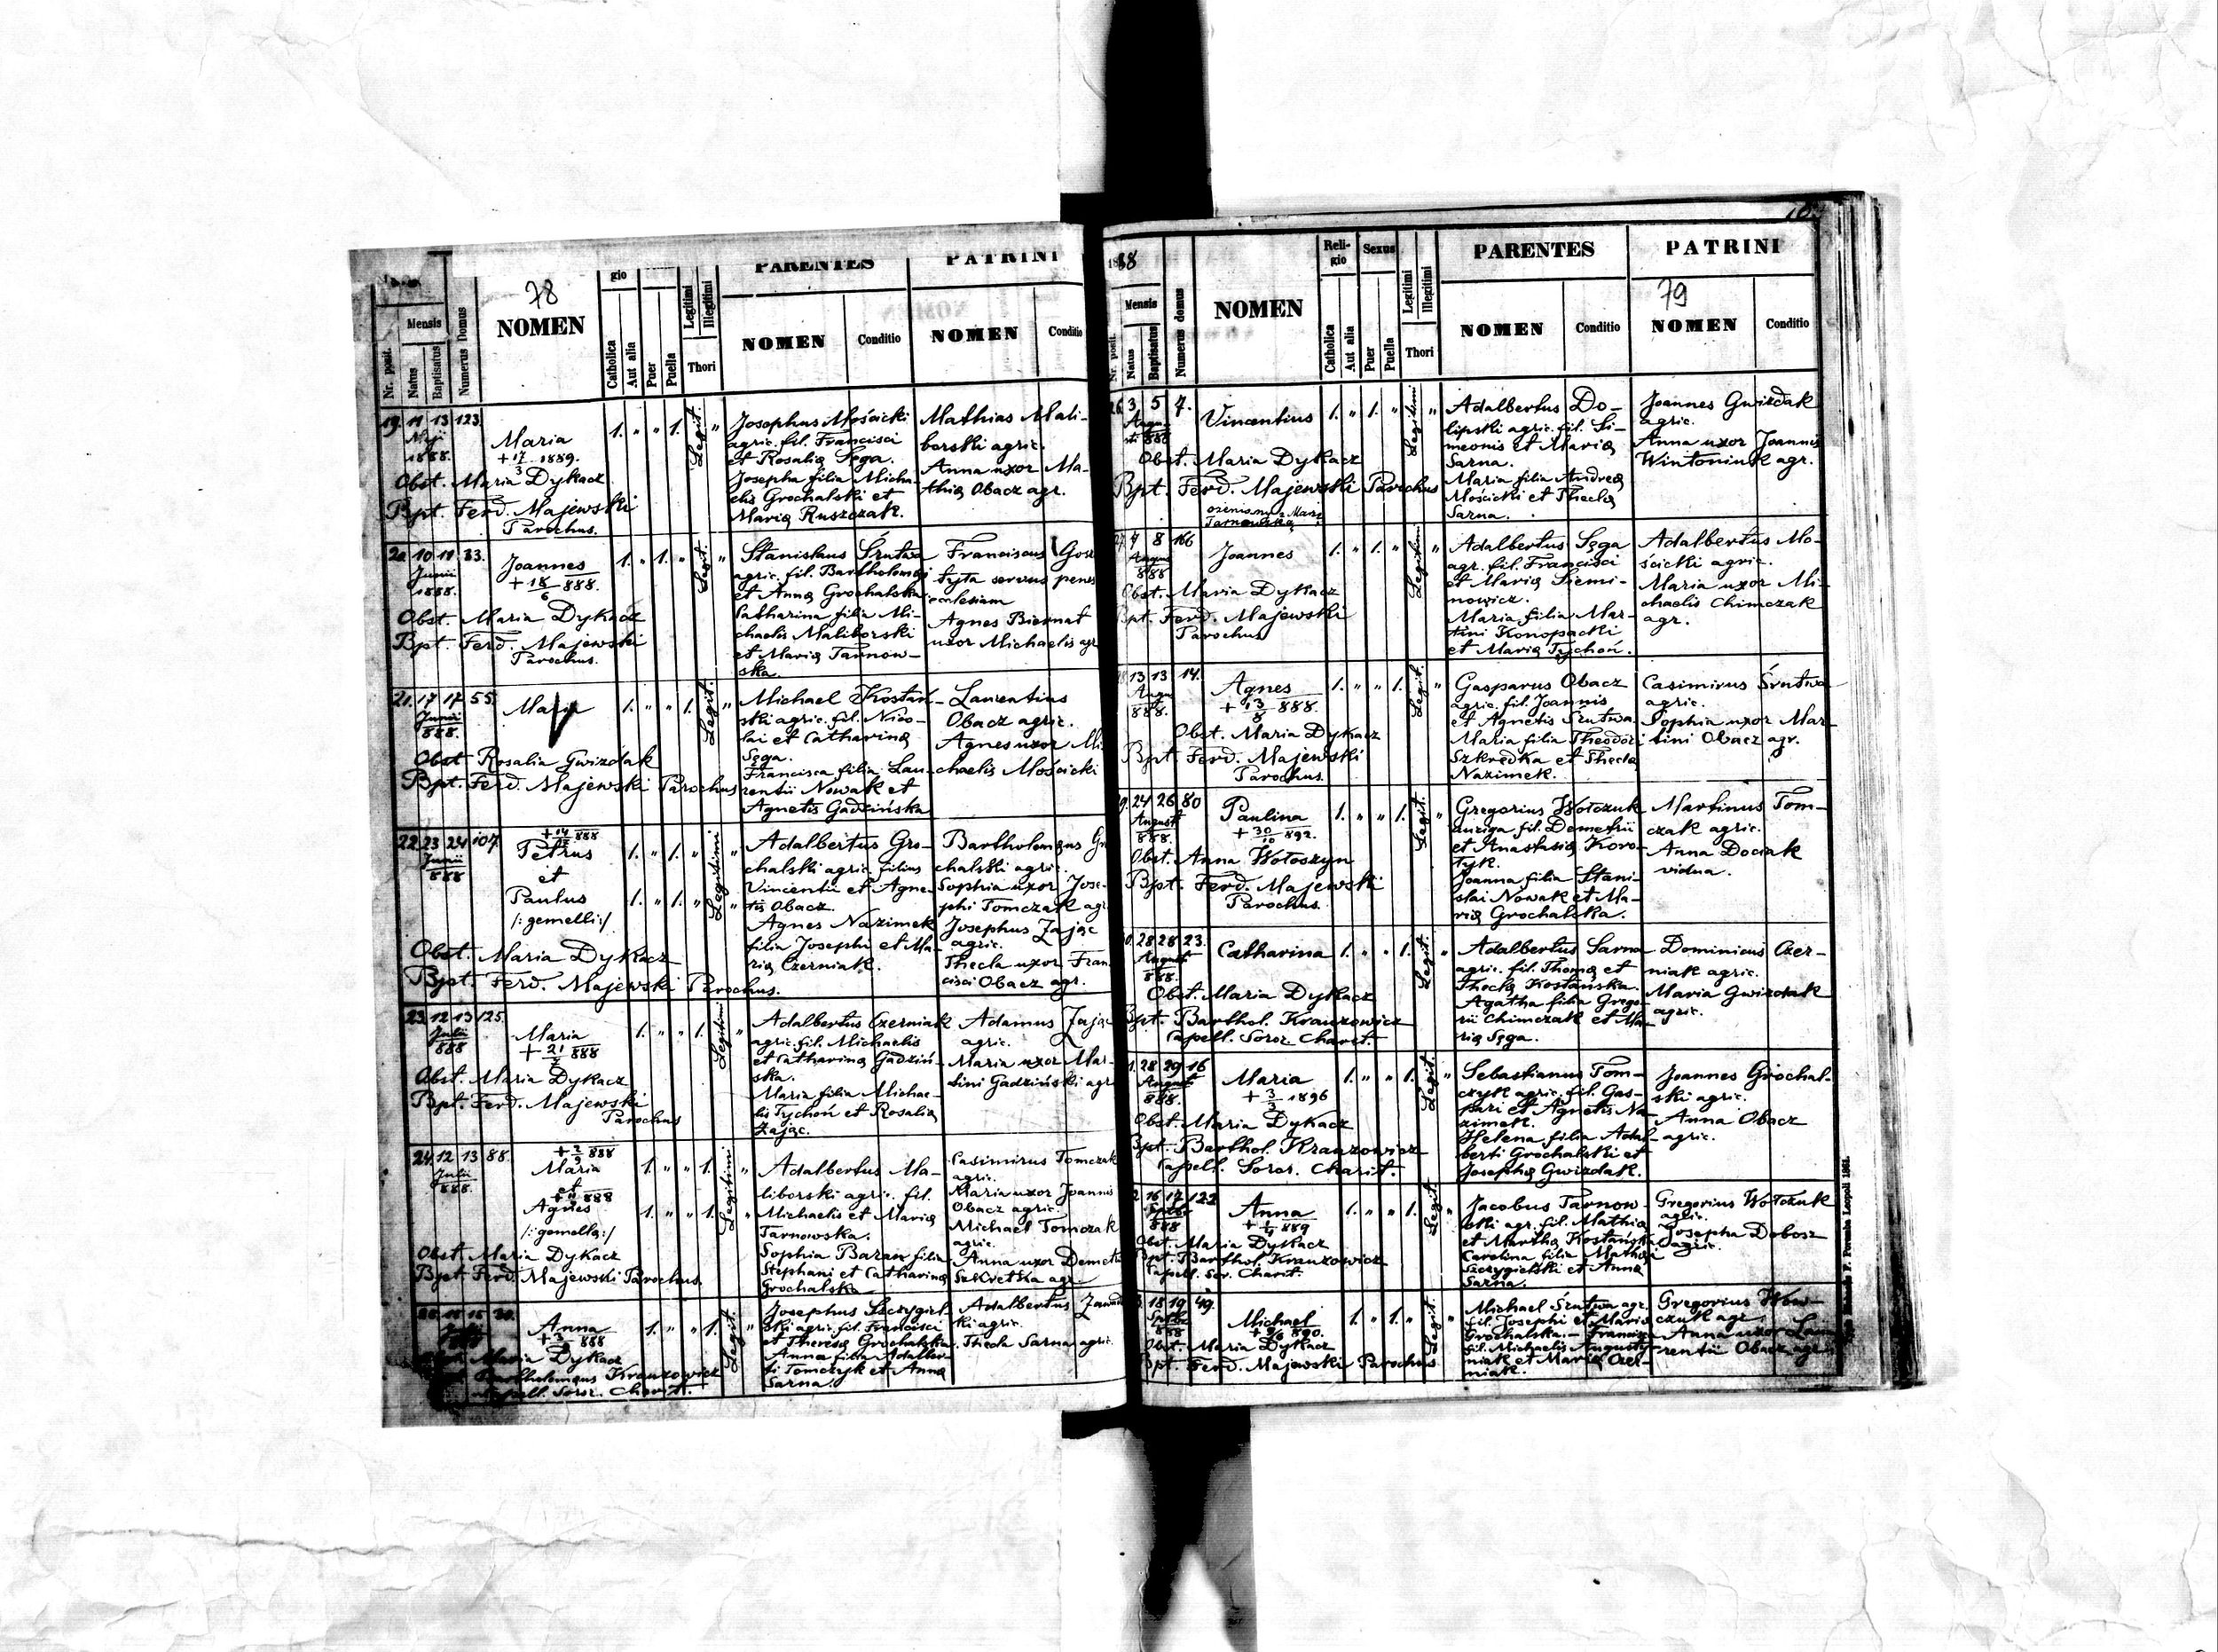 78
gio
PARENTES
PATRINI
Nr. posit.
Mensis
Natus
Baptisatus
Numerus Domus
NOMEN
Catholica
Aut alia
Puer
Puella
Legitimi
Illegitimi
Thori
NOMEN
Conditio
NOMEN
Conditio
19. 11 13 123.
Maji
1888.
Maria
+ 17/3 1889.
1. " " 1. Legit. "
Obst. Maria Dykacz
Bpt. Ferd. Majewski
Parochus.
Josephus Mościcki
agric. fil. Francisci
et Rosalię Sęga.
Josepha filia Micha-
elis Grochalski et
Marię Ruszczak.
Mathias Mali-
borski agric.
Anna uxor Ma-
thię Obacz agr.
20 10 11 33.
Junii
1888.
Joannes
+ 18/6 888.
1. " 1. " Legit. "
Obst. Maria Dykacz
Bpt. Ferd. Majewski
Parochus.
Stanislaus Śrutwa
agric. fil. Bartholomęi
et Annę Grochalska
Catharina filia Mi-
chaelis Maliborski
et Marię Tarnow-
ska.
Franciscus
tyta servus penes
ecclesiam
Agnes Biernat
uxor Michaelis agr
21. 17 17 55.
Junii
888.
Maria
1. " " 1. Legit. "
Obst Rosalia Gwizdak
Bpt. Ferd. Majewski Parochus
Michael Kostań-
ski agric. fil. Nico-
lai et Catharinę
Sęga.
Francisca filia Lau-
rentii Nowak et
Agnetis Gadzińska
Laurentius
Obacz agric.
Agnes uxor Mi-
chaelis Mościcki
22. 23 24 107.
Junii
888
Petrus
et
Paulus
/: gemelli :/
1. " 1. " Legitimi "
1. " 1. " "
Obst. Maria Dykacz
Bpt. Ferd. Majewski Parochus.
Adalbertus Gro-
chalski agric. filius
Vincentii et Agne-
tis Obacz.
Agnes Nazimek
filia Josephi et Ma-
rię Czerniak.
Bartholomęus
chalski agric.
Sophia uxor Jose-
phi Tomczak agr
Josephus Zając
agric.
Thecla uxor Fran-
cisci Obacz agr.
23. 12 13 125.
Julii
888
Maria
+ 888
1. " " 1. Legitimi "
Obst. Maria Dykacz
Bpt. Ferd. Majewski
Parochus
Adalbertus Czerniak
agric. fil. Michaelis
et Catharinę Gadziń-
ska.
Maria filia Michae-
lis Tychoń et Rosalię
Zając.
Adamus Zając
agric.
Maria uxor Mar-
tini Gadziński agr
24. 12 13 88.
Julii
888.
Maria
et
Agnes
/: gemellę :/
1. " " 1. Legitimi "
1. " " 1. "
Obst. Maria Dykacz
Bpt. Ferd. Majewski Parochus.
Adalbertus Ma-
liborski agric. fil.
Michaelis et Marię
Tarnowska.
Sophia Baran filia
Stephani et Catharinę
Grochalska
Casimirus Tomczak
agric.
Maria uxor Joannis
Obacz agric.
Michael Tomczak
agric.
Anna uxor
agr.
Anna
888
1. " " 1. Legit. "
Maria Dykacz
Bartholomęus Kranzowicz
Capell. Soror. Charit.
Josephus Szczygiel-
ski agric. fil. Francisci
et Theresę Grochalska
Anna filia Adalber-
ti Tomczyk et Annę
Sarna.
Adalbertus
ki agric.
Thecla Sarna agric.
1888
Nr. posit.
Mensis
Natus
Baptisatus
Numerus domus
NOMEN
Reli-
gio
Catholica
Aut alia
Sexus
Puer
Puella
Legitimi
Illegitimi
Thori
PARENTES
NOMEN
Conditio
79
PATRINI
NOMEN
Conditio
26. 3 5 7.
Augu-
sti 888
Vincentius
1. " 1. " Legitimi "
Obst. Maria Dykacz
Bpt. Ferd. Majewski Parochus
Adalbertus Do-
lipski agric. fil. Si-
meonis et Marię
Sarna.
Maria filia Andreę
Mościcki et Theclę
Sarna.
Joannes Gwizdak
agric.
Anna uxor Joannis
Wintoniuk agr.
8 166
888
Joannes
1. " 1. " Legitimi "
Obst. Maria Dykacz
Bpt. Ferd. Majewski
Parochus
Adalbertus Sęga
agr. fil. Francisci
et Marię Siemi-
nowicz.
Maria filia Mar-
tini Konopacki
et Marię Tychoń.
Adalbertus Mo-
ścicki agric.
Maria uxor Mi-
chaelis Chimczak
agr.
13 13 14.
888.
Agnes
+ 13/8 888.
1. " " 1. Legit. "
Obst. Maria Dykacz
Bpt Ferd. Majewski
Parochus.
Gasparus Obacz
agric. fil. Joannis
et Agnetis Śrutwa.
Maria filia Theodori
Szkredka et Theclę
Nazimek.
Casimirus Śrutwa
agric.
Sophia uxor Mar-
tini Obacz agr.
24 26 80
August
888.
Paulina
+ 30/10 892.
1. " " 1. Legit. "
Obst. Anna Wołoszyn
Bpt. Ferd. Majewski
Parochus.
Gregorius Wołczuk
auriga fil. Demetrii
et Anastasię Koro-
tyk.
Joanna filia Stani-
slai Nowak et Ma-
rię Grochalska.
Martinus Tom-
czak agric.
Anna Dociak
vidua.
28 28 23.
August
888.
Catharina
1. " " 1. Legit. "
Obst. Maria Dykacz
Bpt. Barthol. Kranzowicz
Capell. Soror. Charit.
Adalbertus Sarna
agric. fil. Thomę et
Theclę Kostańska.
Agatha filia Grego-
rii Chimczak et Ma-
rię Sęga.
Dominicus Czer-
niak agric.
Maria Gwizdak
agric.
28 29 16
August
888.
Maria
+ 3/3 1896
1. " " 1. Legit. "
Obst. Maria Dykacz
Bpt. Barthol. Kranzowicz
Capell. Soror. Charit.
Sebastianus Tom-
czyk agric. fil. Gas-
pari et Agnetis Na-
zimek.
Helena filia Adal-
berti Grochalski et
Josephę Gwizdak.
Joannes Grochal-
ski agric.
Anna Obacz
agric.
16 17 122
888
Anna
889
1. " " 1. Legit. "
Obst. Maria Dykacz
Bpt. Barthol. Kranzowicz
Capell. Sor. Charit.
Jacobus Tarnow-
ski agr. fil. Mathię
et Marthę Kostańska
Carolina filia Mathęi
Szczygielski et Annę
Sarna.
Gregorius Wołczuk
agric.
Josepha Dobosz
agric.
18 19 49.
888
Michael
890.
1. " 1. " Legit. "
Obst. Maria Dykacz
Bpt. Ferd. Majewski Parochus
Michael Śrutwa agr.
fil. Josephi et Marię
Grochalska. – Francisca
fil. Michaelis Augusty-
niak et Marię Czer-
niak.
Gregorius Wow-
czuk agr.
Anna uxor Lau-
rentii Obacz agr.